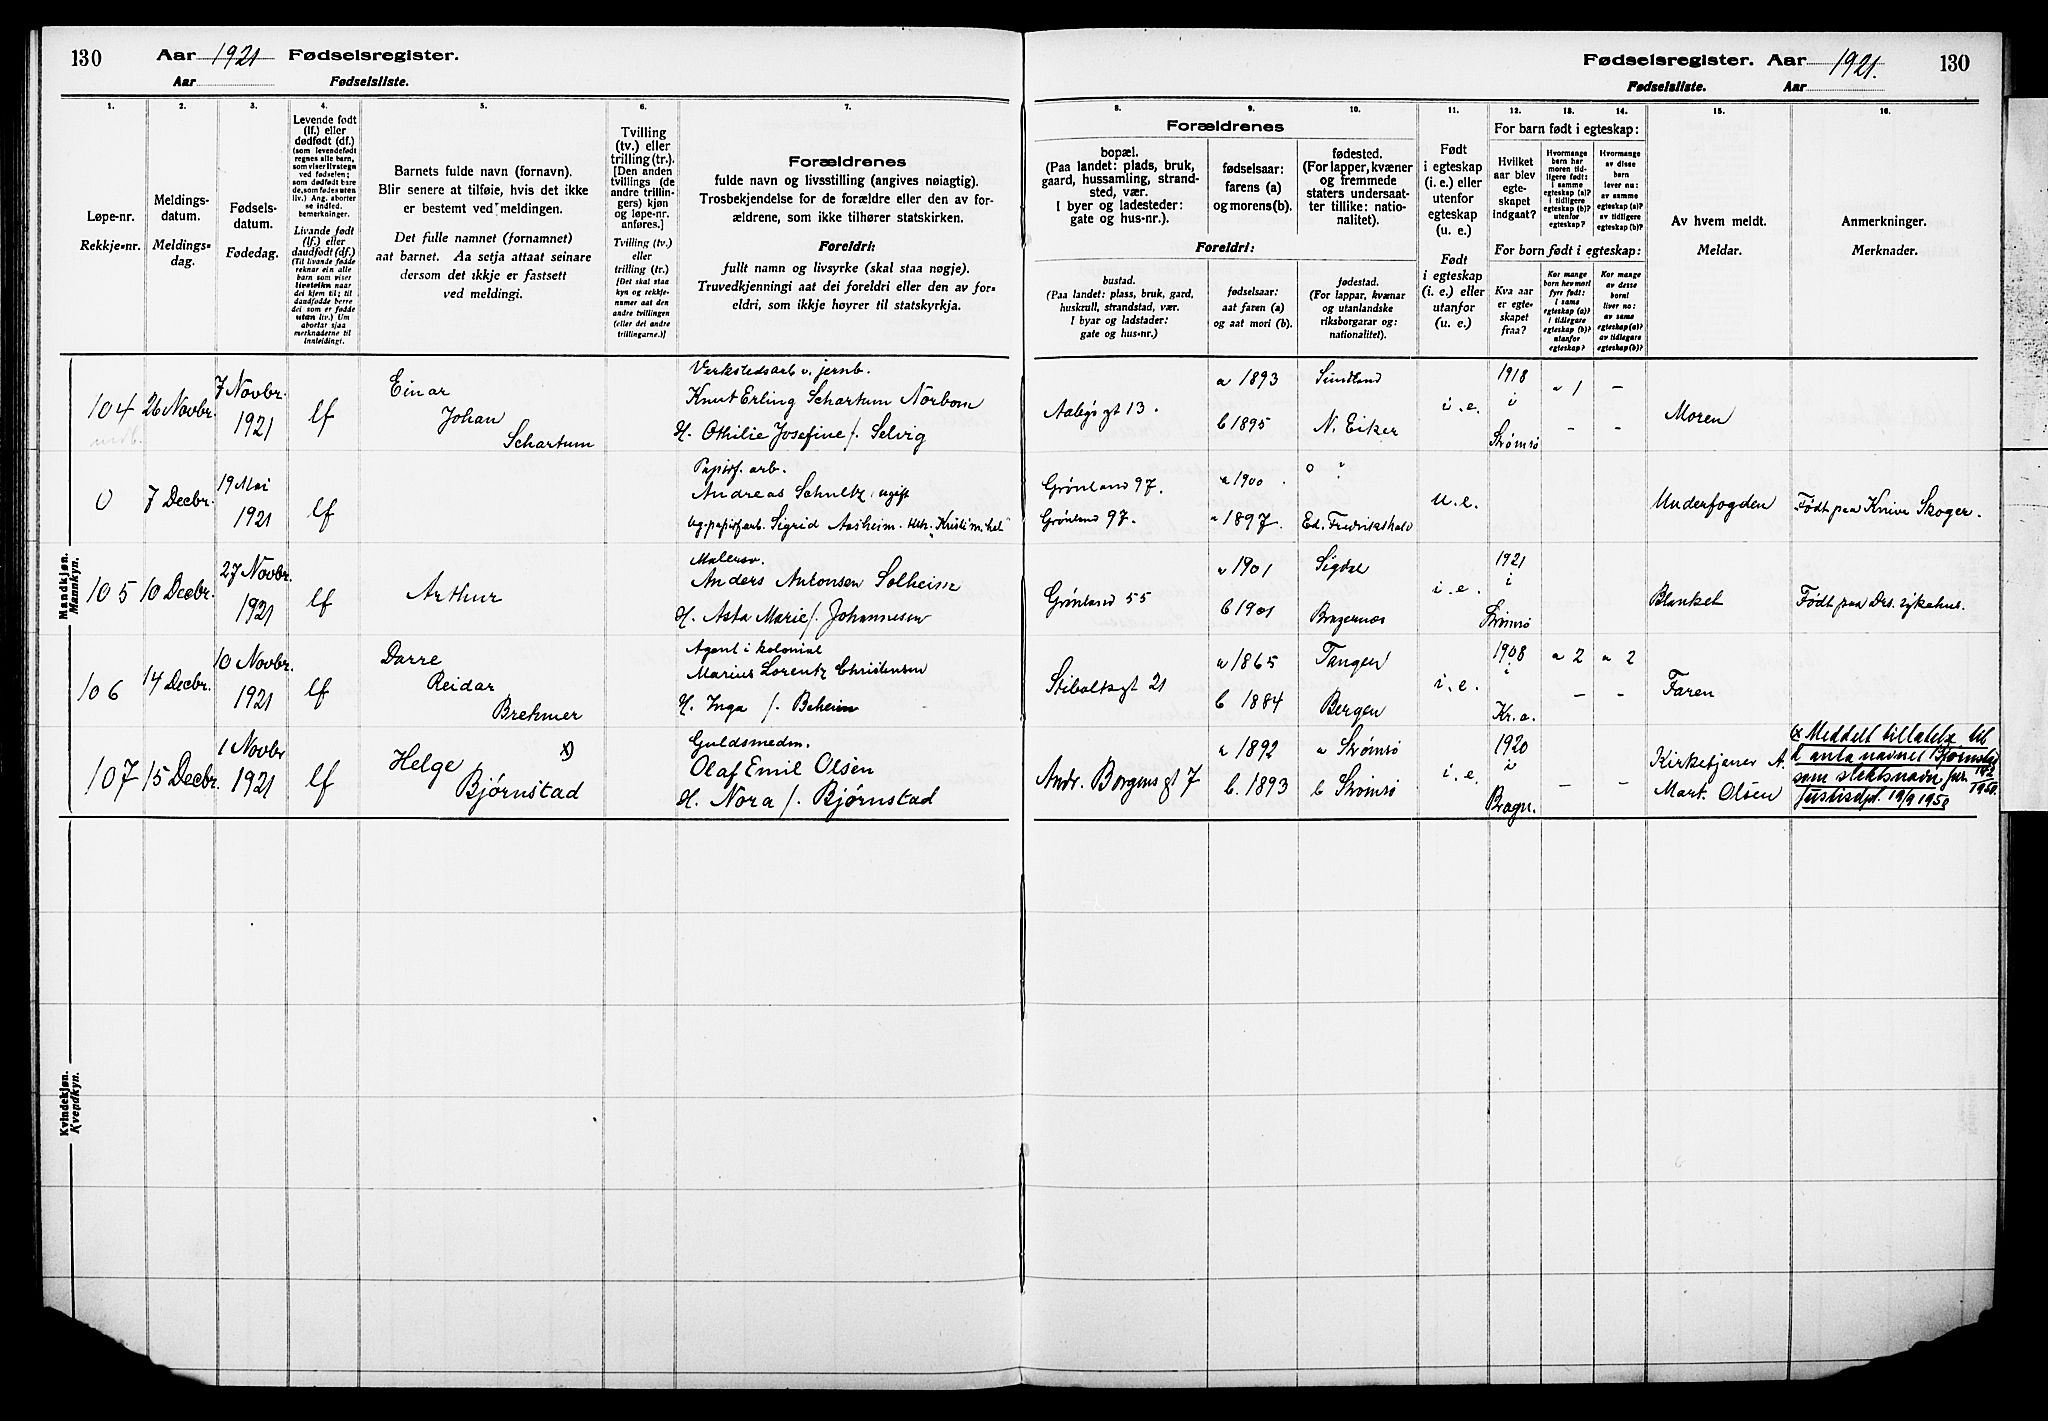 130 Aar 1921 Fødselsregister.
Aar Fødselsliste.
Fødselsregister. Aar 1921. 130
Fødselsliste. Aar
1. 2. 3. 4. 5. 6. 7.
Løpe-nr.
Rekkje-nr.
Meldings-
datum.
Meldings-
dag.
Fødsels-
datum.
Fødedag.
Levende født
(lf.) eller
dødfødt (df.)
(som levendefødt
regnes alle barn,
som viser livstegn
ved fødselen;
som dødfødt bare
de, som fødes uten
liv.) Ang. aborter
se indled.
bemerkninger.
Livande født
(lf.) eller
daudfødt (df.)
(Til livande fødde
reknar ein alle
barn som viser
livsteikn naar
dei kjem til; til
daudfødde berre
dei som er fødde
utan liv.) Um
abortar sjaa
merknaderne til
innleidingi.
Barnets fulde navn (fornavn).
Blir senere at tilføie, hvis det ikke
er bestemt ved meldingen.
Det fulle namnet (fornamnet)
aat barnet. Aa setja attaat seinare
dersom det ikkje er fastsett
ved meldingi.
Tvilling
(tv.) eller
trilling (tr.).
[Den anden
tvillings (de
andre trillin-
gers) kjøn
og løpe-nr.
anføres.]
Tvilling (tv.)
eller
trilling (tr.)
[Det skal staa
kyn og rekkje-
numer aat den
andre tvillingen
(eller dei andre
trillingarne.)]
Forældrenes
fulde navn og livsstilling (angives nøiagtig).
Trosbekjendelse for de forældre eller den av for-
ældrene, som ikke tilhører statskirken.
Foreldri:
fullt namn og livsyrke (skal staa nøgje).
Truvedkjenningi aat dei foreldri eller den av for-
eldri, som ikkje høyrer til statskyrkja.
8. 9. 10. 11. 12. 13. 14. 15. 16.
Forældrenes
bopæl.
(Paa landet: plads, bruk,
gaard, hussamling, strand-
sted, vær.
I byer og ladesteder:
gate og hus-nr.).
fødselsaar:
farens (a)
og morens (b).
fødested.
(For lapper, kvæner
og fremmede
staters undersaat-
ter tillike: natio-
nalitet).
Foreldri:
bustad.
(Paa landet: plass, bruk, gard,
huskrull, strandstad, vær.
I byar og ladstader:
gate og hus-nr.)
fødselsaar:
aat faren (a)
og aat mori (b).
fødestad.
(For lappar, kvænar
og utanlandske
riksborgarar og:
nationalitet).
Født
i egteskap
(i. e.) eller
utenfor
egteskap
(u. e.)
Født
i egteskap
(i. e.) eller
utanfor
(u. e.)
For barn født i egteskap:
Hvilket
aar blev
egte-
skapet
indgaat?
Hvormange
barn har
moren tid-
ligere født:
i samme
egteskap (a)?
i tidligere
egteskap (b)?
utenfor
egteskap?
Hvormange
av disse
barn
lever nu:
av samme
egteskap (a)?
av tidligere
egteskap (b)?
For born født i egteskap:
Kva aar
er egte-
skapet
fraa?
Kor mange
born hev mori
fyrr født:
I same
egteskap (a)?
I tidlegare
egteskap (b)?
utanfor
egteskap?
Kor mange
av desse
borni
liver no:
av same
egteskap (a)?
av tidlegare
egteskap (b)?
Av hvem meldt.
Meldar.
Anmerkninger.
Merknader.
Mandkjøn.
Mannkyn.
104 26 Novbr. 7 Novbr. 1921 lf Einar
Johan
Schartum
Verkstedsarb v. jernb.
Knut Erling Schartum Norbom
H. Othilie Josefine f. Selvig
Aabys gt 13. a 1893
b 1895 N. Eiker i.e. 1918
i
Strømsø a 1 –
– – Moren
0 7 Decbr. 19 Mai 1921 lf
Papirf. arb.
Andreas Schultz, ugift
ug. papirf arb. Sigrid Aasheim.
Grønland 97. a 1900
Grønland 97. 1897. Ed. Fredrikshald u.e. Underfogden Født paa Knive Skoger.
105 10 Decbr. 27 Novbr. 1921 lf Arthur
Malersv.
Anders Antonsen Solheim
H. Asta Marie f. Johannesen
Grønland 55 a 1901 Sigdal
b 1901 Bragernæs i.e. 1921
i
Strømsø Blanket Født paa Drs. sykehus.
106 14 Decbr. 10 Novbr. 1921 lf Darre
Reidar
Brehmer
Agent i kolonial
Marius Lorentz Christensen
H. Inga f. Beheim
Stiboltsgt 21 a 1865 Tangen
b 1884 Bergen i.e. 1908
i
Kr.a. a 2 a 2
– – Faren
107 15 Decbr. 1 Novbr 1921 lf Helge x)
Bjørnstad
Guldsmedm.
Olaf Emil Olsen
H. Nora f. Bjørnstad
Andr. Borgens gt 7 a 1892 a Strømsø
b. 1893 b Strømsø i.e. 1920
i
Bragn. – – Kirketjener A.
Mart. Olsen
x Meddelt tillatelse til
å anta navnet Bjørnstad
som slektsnavn
Justisdpt. 19/9 1950
Kvindekjøn.
Kvendkyn.